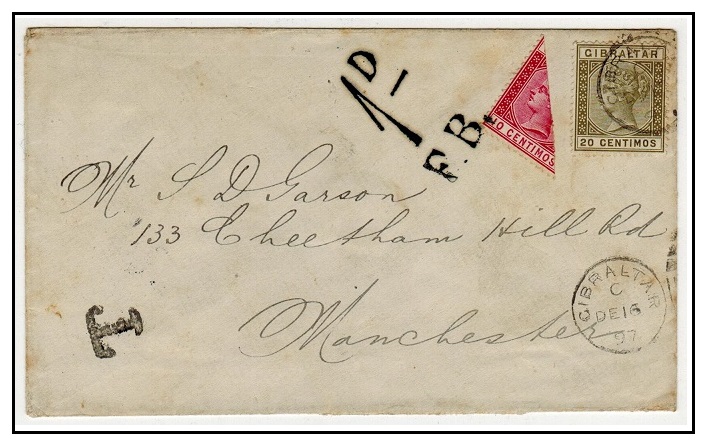 1D 1
F.B.
10 CENTIMOS
GIBRALTAR
20 CENTIMOS
GIBRALTAR
Mr S D Garson
133 Cheetham Hill Rd
Manchester
T
GIBRALTAR
C
DE 16
97